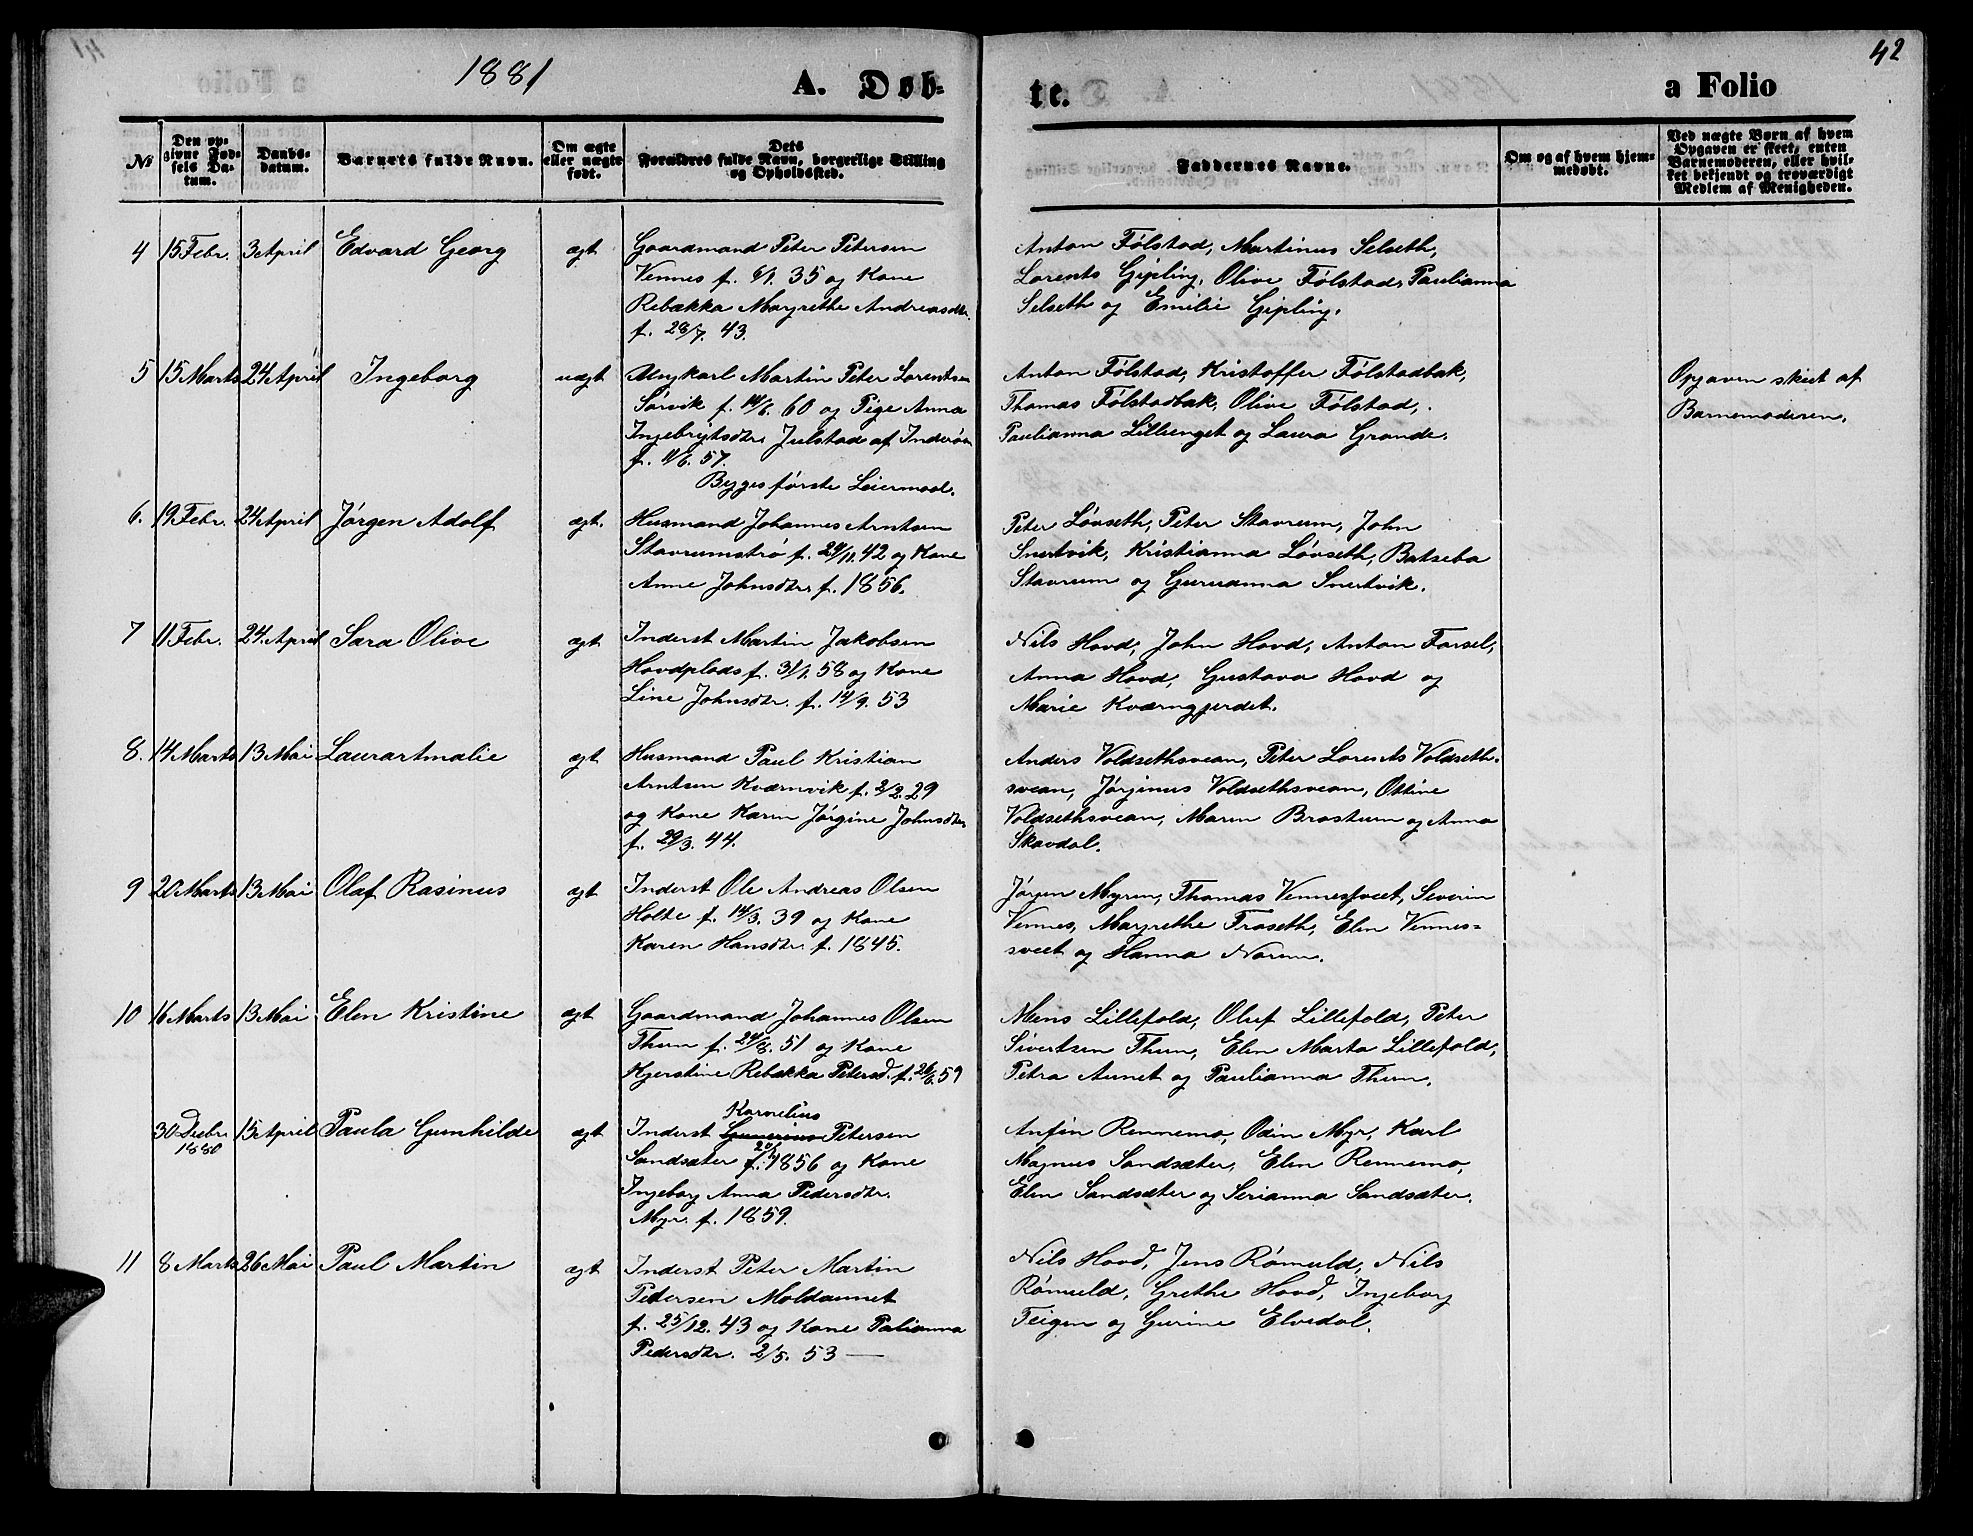 1881
A. Døb-
te.
a Folio
42
No
Den op-
givne Fød-
sels Da-
tum.
Daabs-
datum.
Barnets fulde Navn.
Om ægte
eller uægte
født.
Dets
Forældres fulde Navn, borgerlige Stilling
og Opholdssted.
Faddernes Navne.
Om og af hvem hjem-
medøbt.
Ved uægte Børn af hvem
Opgaven er skeet, enten
Barnemoderen, eller hvil-
ket bekjendt og troværdigt
Medlem af Menigheden.
4 15 Febr. 3 April Edvard Georg ægt
Gaardmand Peter Petersen
Vennes f. 6/1. 35 og Kone
Rebækka Margrethe Andreasdtr.
f. 28/7. 43.
Anton Følstad, Martinus Selseth,
Lorents Gipling, Olive Følstad, Paulianna
Selseth og Emilie Gipling.
5 15 Marts 24 April Ingeborg uægt
Ungkarl Martin Peter Lorentsen
Sørvik f. 14/6. 60 og Pige Anna
Ingebrigtsdtr. Julstad af Inderøen
f. 11/6. 57.
Begges første Leiermaal.
Anton Følstad, Kristoffer Følstadbak,
Thomas Følstadbak, Olive Følstad,
Paulianna Lillienget og Laura Grande.
Opgaven skeet af
Barnemoderen.
6. 19 Febr. 24 April Jørgen Adolf ægt.
Husmand Johannes Arntsen
Stavrumstrø f. 24/11. 42 og Kone
Anne Johnsdtr. f. 1856.
Peter Løvseth, Peter Stavrum, John
Snertvik, Kristianna Løvseth, Batseba
Stavrum og Guruanna Snertvik.
7 11 Febr. 24 April Sara Olive ægt
Inderst Martin Jakobsen
Hovdplads f. 31/1. 58 og Kone
Line Johnsdtr. f. 14/9. 53
Nils Hovd, John Hovd, Anton Farsel,
Anna Hovd, Gustava Hovd og
Marie Kværngjerdet.
8. 14 Marts 13 Mai Laurartmalie ægt
Husmand Paul Kristian
Arntsen Kværnvik f. 2/2. 29
og Kone Karen Jørgine Johnsdtr.
f. 29/3. 44.
Anders Voldsethsvean, Peter Lorents Voldseth-
svean, Jørginus Voldsethsvean, Ottine
Voldsethsvean, Maren Brostrum og Anna
Skavdal.
9 20 Marts 13 Mai Olaf Rasinus ægt
Inderst Ole Andreas Olsen
Holte f. 14/3. 39 og Kone
Karen Hansdtr. f. 1845.
Jørgen Myren, Thomas Vennessveet, Severin
Vennes, Margrethe Fraseth, Elen Vennes-
sveet og Hanna Norum.
10 16 Marts 13 Mai Elen Kristine ægt
Gaardmand Johannes Olsen
Thum f. 24/8. 51 og Kone
Kjerstine Rebækka Petersd. f. 26/6. 59
Mens Lillefold, Oluf Lillefold, Peter
Sivertsen Thum, Elen Marta Lillefold,
Petra Aunet og Paulianna Thum.
30 Decbr. 15 April Paula Gunhilde ægt
1880
Kornelius
Inderst Petersen
Sandsæter f. 1856 og Kone
Ingeborg Anna Pedersdtr.
Myr. f. 1859.
Anfin Rennemo, Odin Myr, Karl
Magnus Sandsæter, Elen Rennemo,
Elen Sandsæter og Serianna Sandsæter.
11 8 Marts 26 Mai Paul Martin ægt
Inderst Peter Martin
Pedersen Moldaunet
f. 25/12. 43 og Kone Palianna
Pedersdtr. 2/5. 53 —
Nils Hovd, Jens Rømuld, Nils
Rømuld, Grethe Hovd, Ingeborg
Feigen og Gurine Elvedal.